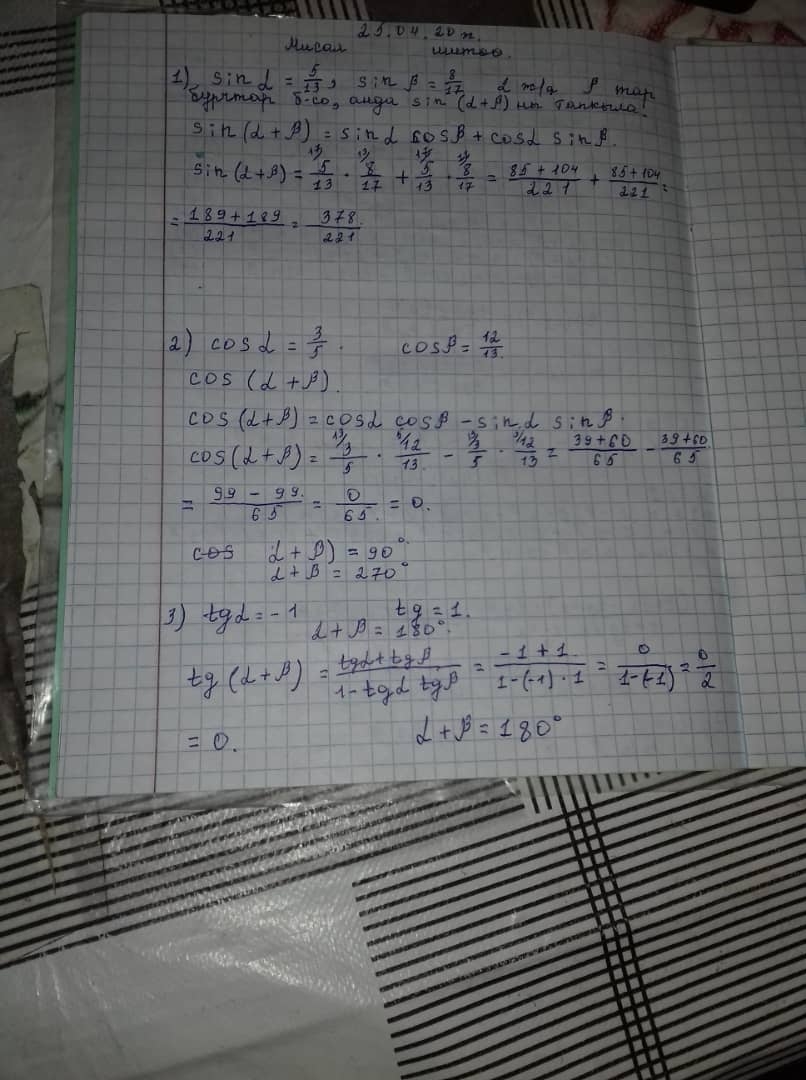 25.04.20 ж.
Мисал иштөө.
1) sin α = 5/13, sin β = 8/17 α ж/а β тар
бурчтар б-со, анда sin (α+β) ны тапкыла!
sin (α+β) = sin α cos β + cos α sin β.
sin (α+β) = 5/13 · 8/17 + 5/13 · 8/17 = 85+104/221 + 85+104/221 =
= 189+189/221 = 378/221.
2) cos α = 3/5. cos β = 12/13.
cos (α+β).
cos (α+β) = cos α cos β – sin α sin β.
cos (α+β) = 3/5 · 12/13. – 3/5 · 12/13 = 39+60/65 – 39+60/65
= 99 – 99./65 = 0/65. = 0.
cos α+β) = 90°.
α+β = 270°
3) tg α = -1 tg = 1.
α+β = 180°.
tg (α+β) = tg α + tg β/1 - tg α tg β = -1+1./1-(-1)·1 = 0/1-(-1) = 0/2
= 0. α+β = 180°